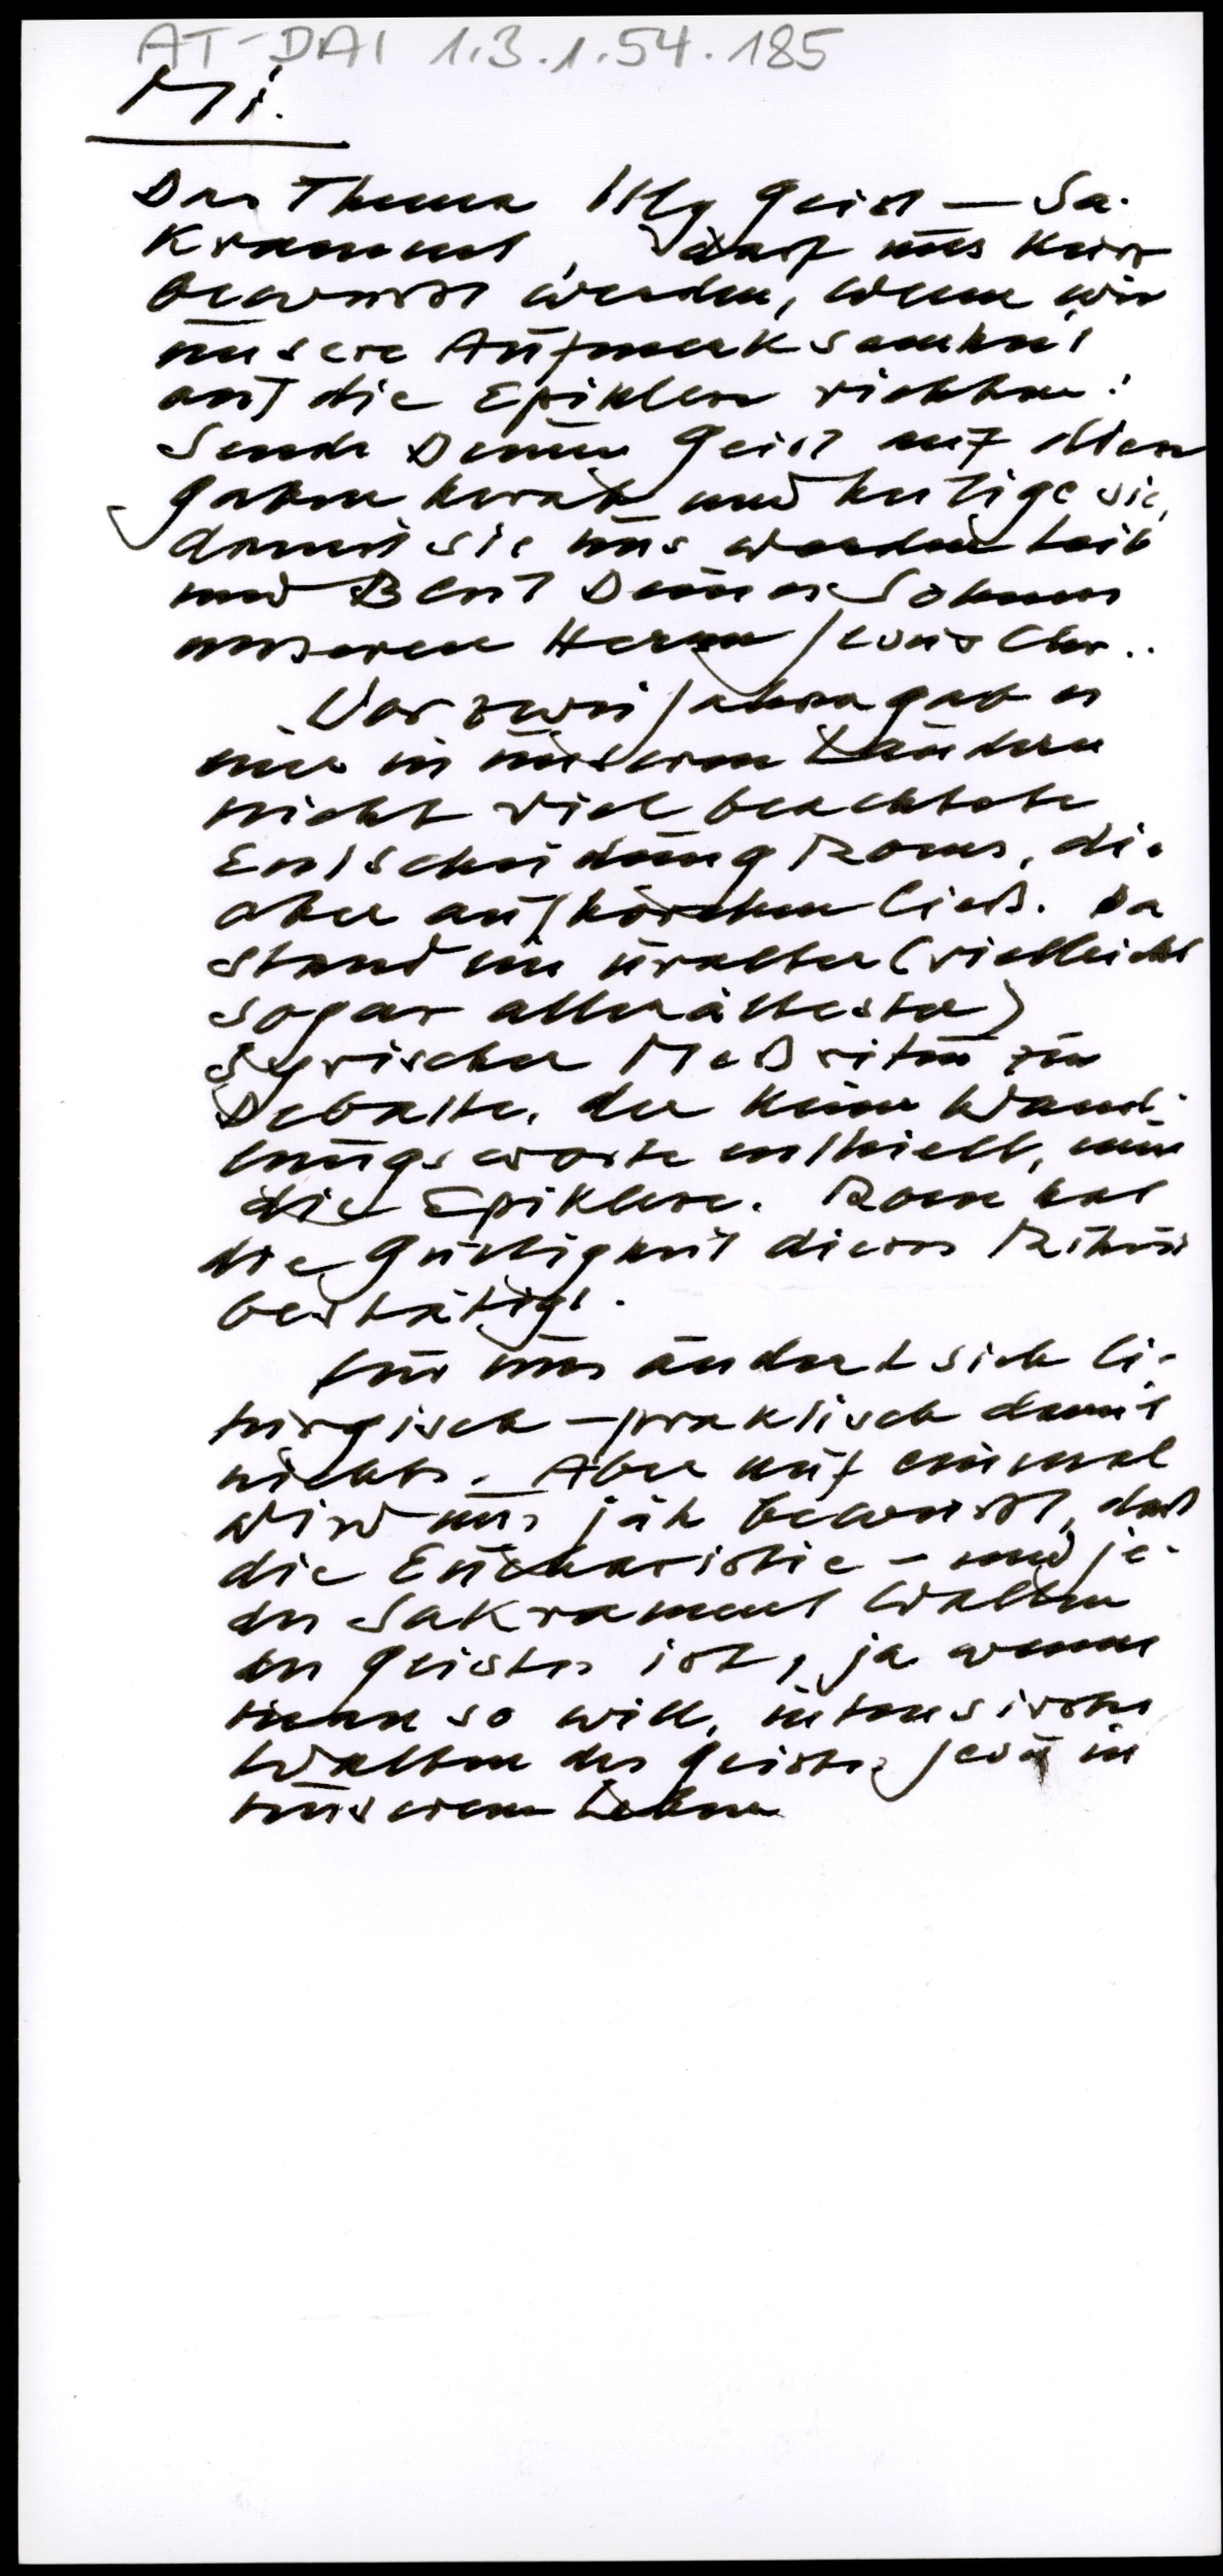 AT-DAI 1.3.1.54.185
Mi.
Das Thema Hlg Geist — Sa-
krament, darf uns kurz
bewusst werden, wenn wir
unsere Aufmerksamkeit
auf die Epiklese richten:
Sende Deinen Geist auf diese
Gaben herab und heilige sie,
damit sie uns werden Leib
und Blut Deines Sohnes
unseres Herrn Jesus Chr..
Vor zwei Jahren gab es
eine in unseren Ländern
nicht viel beachtete
Entscheidung Roms, die
aber aufhorchen ließ. Da
stand ein uralter (vielleicht
sogar allerältester)
Syrischer Meßritus zur
Debatte, der keine Wand-
lungsworte enthielt, nur
die Epiklese. Rom hat
die Gültigkeit dieses Ritus
bestätigt.
Für uns ändert sich li-
turgisch-praktisch damit
nichts. Aber auf einmal
wird uns jäh bewusst, daß
die Eucharistie - und je-
des Sakrament Walten
des Geistes ist, ja wenn
man so will, intensivstes
Walten des Geistes Jesu in
unserem Leben